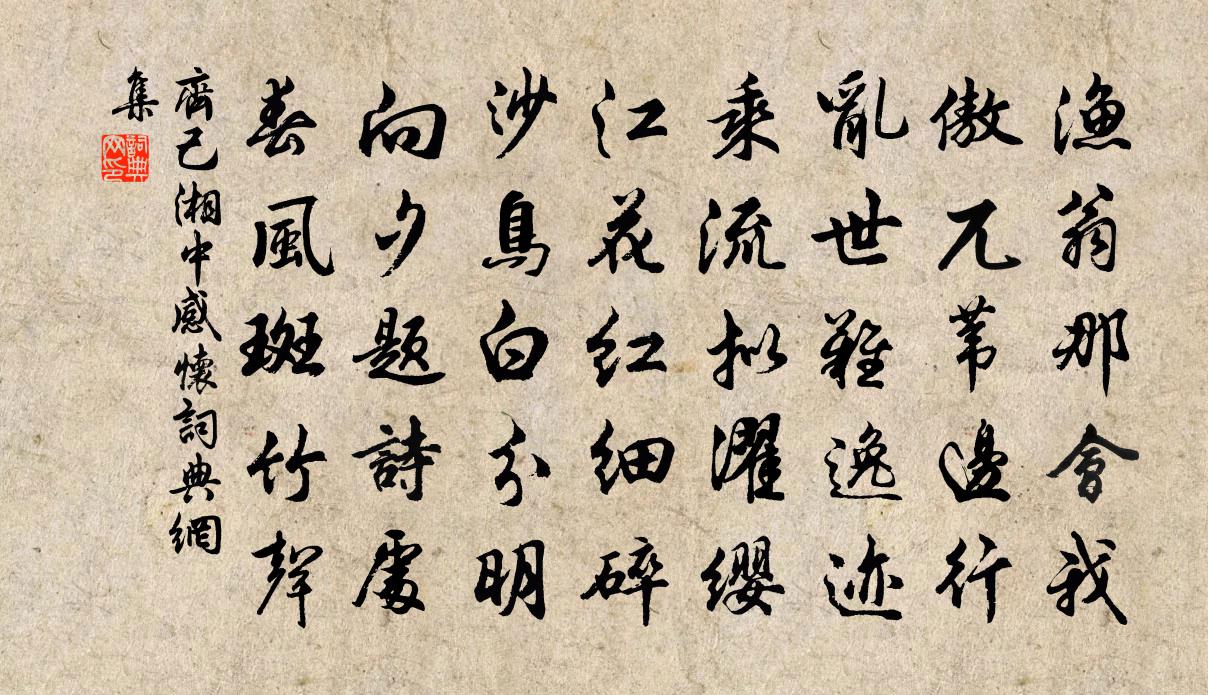 漁翁那會我
傲兀葦邊行
亂世難逸迹
乘流擬濯纓
江花紅細碎
沙鳥白分明
向夕題詩處
春風斑竹聲
齊己湘中感懷詞典網
集
詞典
网印